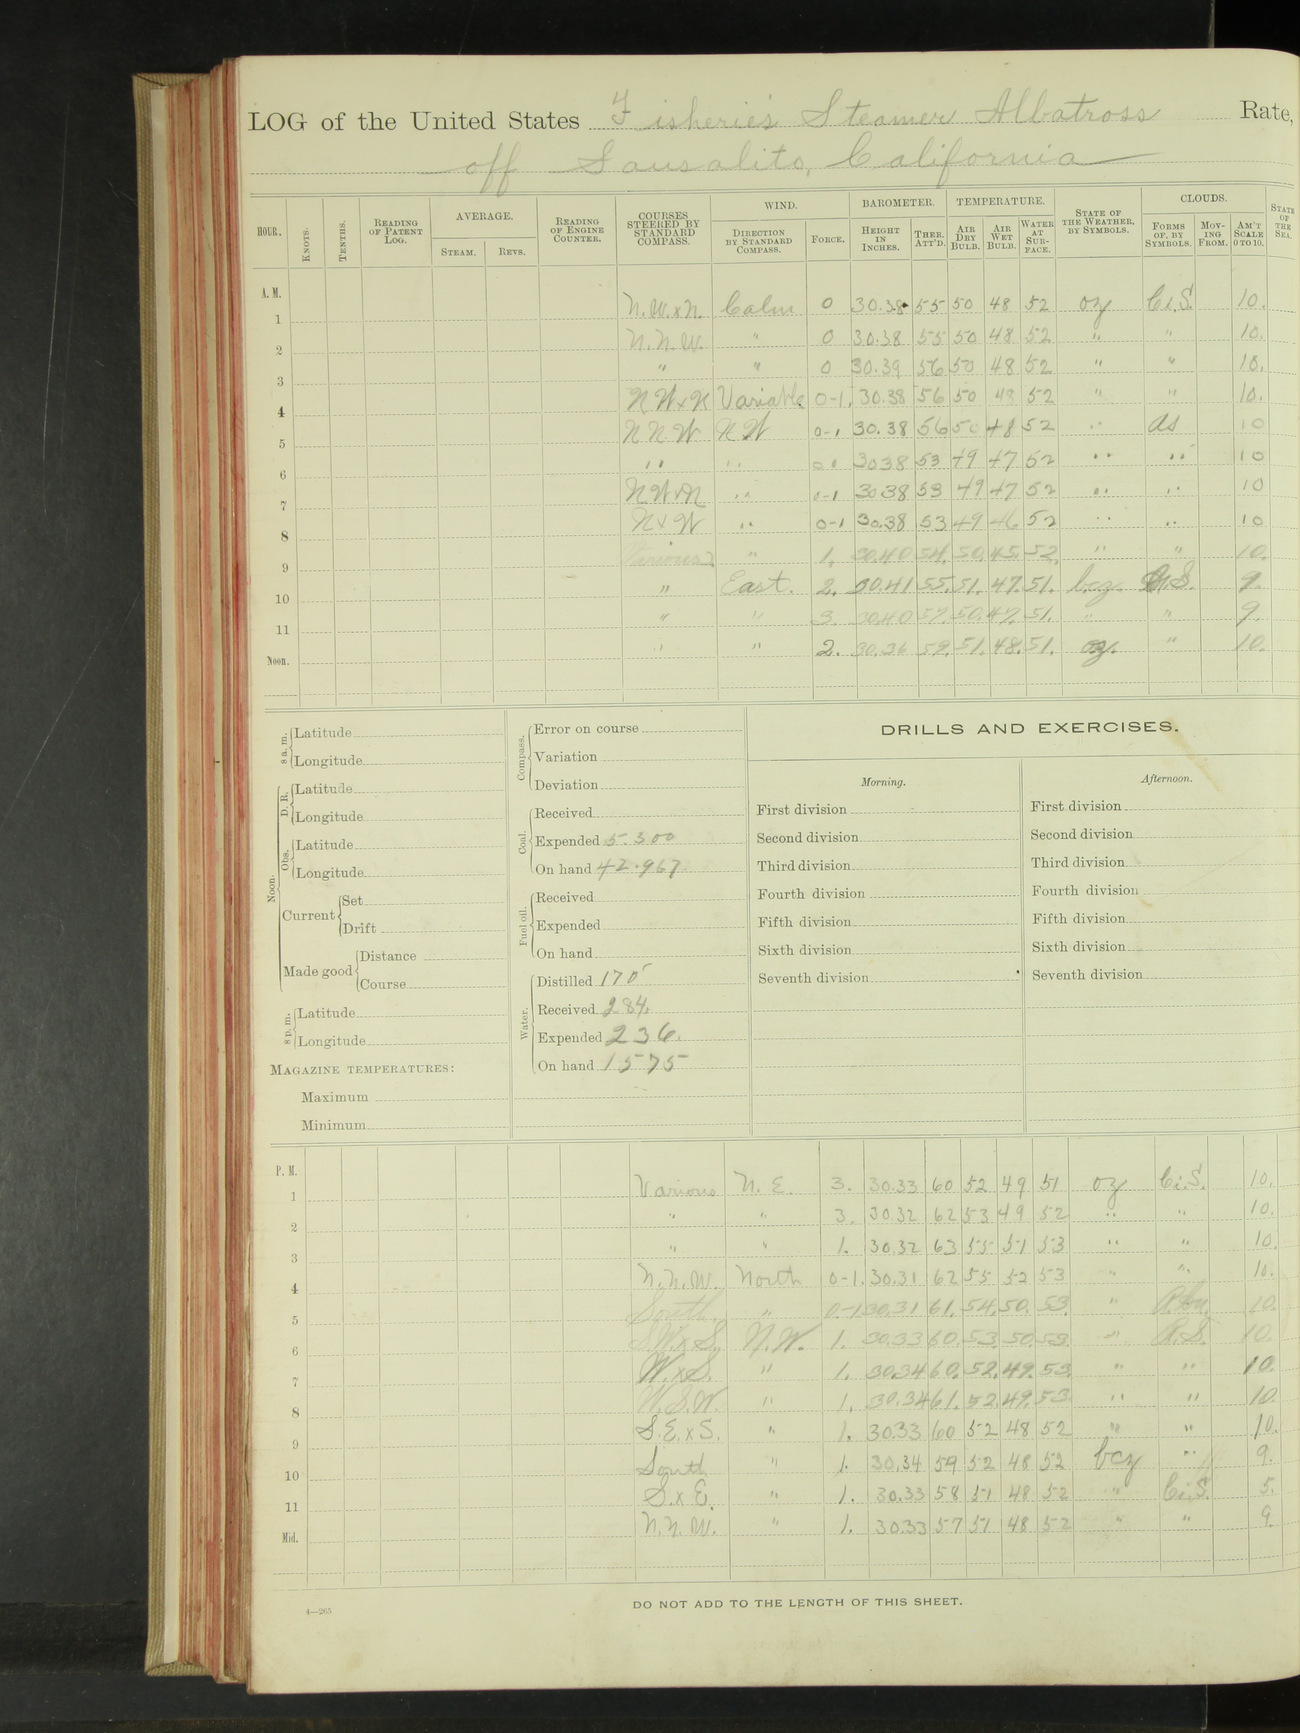 LOG of the United States Fisheries Steamer Albatross Rate,
off Sausalito, California
HOUR. KNOTS. TENTHS. READING OF PATENT LOG. AVERAGE. STEAM. REVS. READING OF ENGINE COUNTER. COURSES STEERED BY STANDARD COMPASS. WIND. DIRECTION BY STANDARD COMPASS. FORCE. BAROMETER. HEIGHT IN INCHES. THER. ATT'D. TEMPERATURE. AIR DRY BULB. AIR WET BULB. WATER AT SURFACE. STATE OF THE WEATHER, BY SYMBOLS. CLOUDS. FORMS OF, BY SYMBOLS. MOVING FROM. AM'T SCALE 0 TO 10. STATE OF THE SEA.
A. M.
1 N.W.xN. Calm 0 30.38 55 50 48 52 oz Ci.S. 10.
2 N.N.W. " 0 30.38 55 50 48 52 " " 10.
3 " " 0 30.39 56 50 48 52 " " 10.
4 NWxN Variable 0-1. 30.38 56 50 48 52 " " 10.
5 NNW NW 0-1 30.38 56 50 48 52 " AS 10
6 " " 0-1 30.38 53 49 47 52 " " 10
7 NWxN " 0-1 30.38 53 49 47 52 " " 10
8 NxW " 0-1 30.38 53 49 46 52 " " 10
9 Various " 1. 30.40 54. 50. 45. 52. " " 10.
10 " East. 2. 30.41 55. 51. 47. 51. bcz. S. 9.
11 " " 3. 30.40 57. 50. 47. 51. " " 9.
Noon. " " 2. 30.36 59. 51. 48. 51. oz. " 10.
8 a. m. Latitude
Longitude
Noon. D. R. Latitude
Longitude
Obs. Latitude
Longitude
Current Set
Drift
Made good Distance
Course
8 p. m. Latitude
Longitude
MAGAZINE TEMPERATURES:
Maximum
Minimum
Compass. Error on course
Variation
Deviation
Coal. Received
Expended 5.300
On hand 42.967
Fuel oil. Received
Expended
On hand
Water. Distilled 170
Received 284.
Expended 236.
On hand 1575
DRILLS AND EXERCISES.
Morning.
First division
Second division
Third division
Fourth division
Fifth division
Sixth division
Seventh division
Afternoon.
First division
Second division
Third division
Fourth division
Fifth division
Sixth division
Seventh division
P. M.
1 Various N. E. 3. 30.33 60 52 49 51 oz Ci.S. 10.
2 " " 3. 30.32 62 53 49 52 " " 10.
3 " " 1. 30.32 63 55 51 53 " " 10.
4 N.N.W. North 0-1. 30.31 62 55 52 53 " " 10.
5 South " 0-1 30.31 61. 54. 50. 53. " 10.
6 S.WxS. N.W. 1. 30.33 60. 53. 50. 53. " A.S. 10.
7 W.xS. " 1. 30.34 60. 52. 49. 53. " " 10.
8 W.S.W. " 1. 30.34 61. 52. 49. 53. " " 10.
9 S.E.xS. " 1. 30.33 60 52 48 52 " " 10.
10 South " 1. 30.34 59 52 48 52 bcz " 9.
11 S.xE. " 1. 30.33 58 51 48 52 " Ci.S. 5.
Mid. N.N.W. " 1. 30.33 57 51 48 52 " " 9.
4—265
DO NOT ADD TO THE LENGTH OF THIS SHEET.